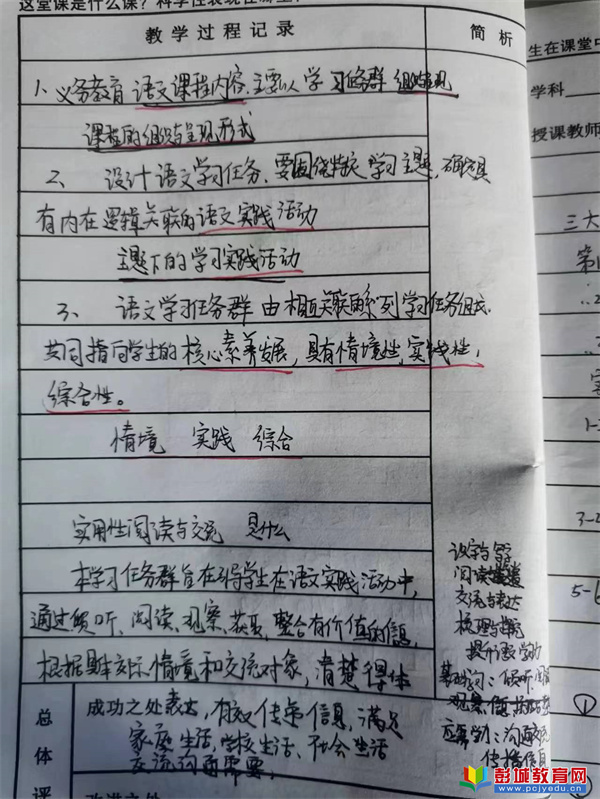 这堂课是什么课？科学性表现在哪里？
教学过程记录
简析
1、义务教育语文课程内容主要以学习任务群组织与呈现
课程的组织与呈现形式
2、设计语文学习任务，要围绕特定学习主题，确定具
有内在逻辑关联的语文实践活动
主题下的学习实践活动
3、语文学习任务群由相互关联的系列学习任务组成，
共同指向学生的核心素养发展，具有情境性，实践性，
综合性。
情境 实践 综合
实用性阅读与交流 是什么
本学习任务群旨在引导学生在语文实践活动中，
通过倾听、阅读、观察、获取、整合有价值的信息，
根据具体交际情境和交流对象，清楚得体
表达，有效传递信息，满足
家庭生活、学校生活、社会生活
交流沟通需要，
识字与写字
阅读与
交流与表达
梳理与探究
倾听、阅
观察
沟通交流
传播信息
成功之处
总体评
改进之处
生在课堂中
学科
授课教师
三大
1-
3-
5-6
①
彭城教育网
www.pcjyedu.com